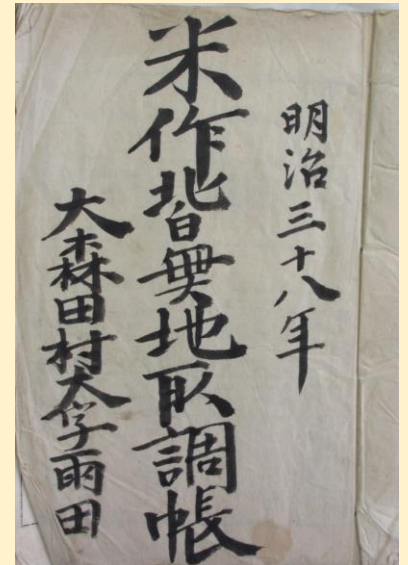 明治三十八年
米作皆無地取調帳
大森田村大字雨田